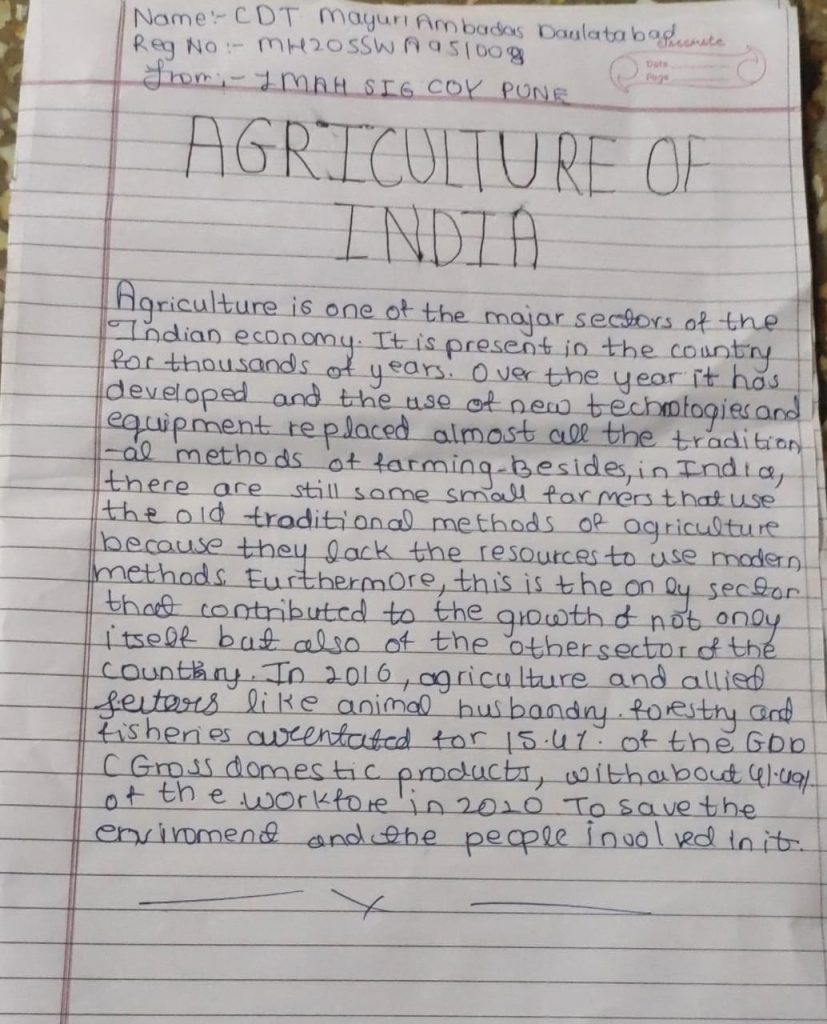 Name:- CDT Mayuri Ambadas Daulatabad
Reg No:- MH20SSWA951008
from:- 1MAH SIG COY PUNE
Date
Page
AGRICULTURE OF
INDIA
Agriculture is one of the majar sectors of the
Indian economy. It is present in the country
for thousands of years. Over the year it has
developed and the use of new technologies and
equipment replaced almost all the tradition
-al methods of farming. Besides, in India,
there are still some small farmers that use
the old traditional methods of agriculture
because they lack the resources to use modern
methods. Furthermore, this is the only sector
that contributed to the growth of not only
itself but also of the other sector of the
country. In 2016, agriculture and allied
like animal husbandry. forestry and
fisheries for 15.4%. of the GDD
(Gross domestic products, with about 41.49%.
of the workfore in 2020 To save the
enviroment and the people involved in it.